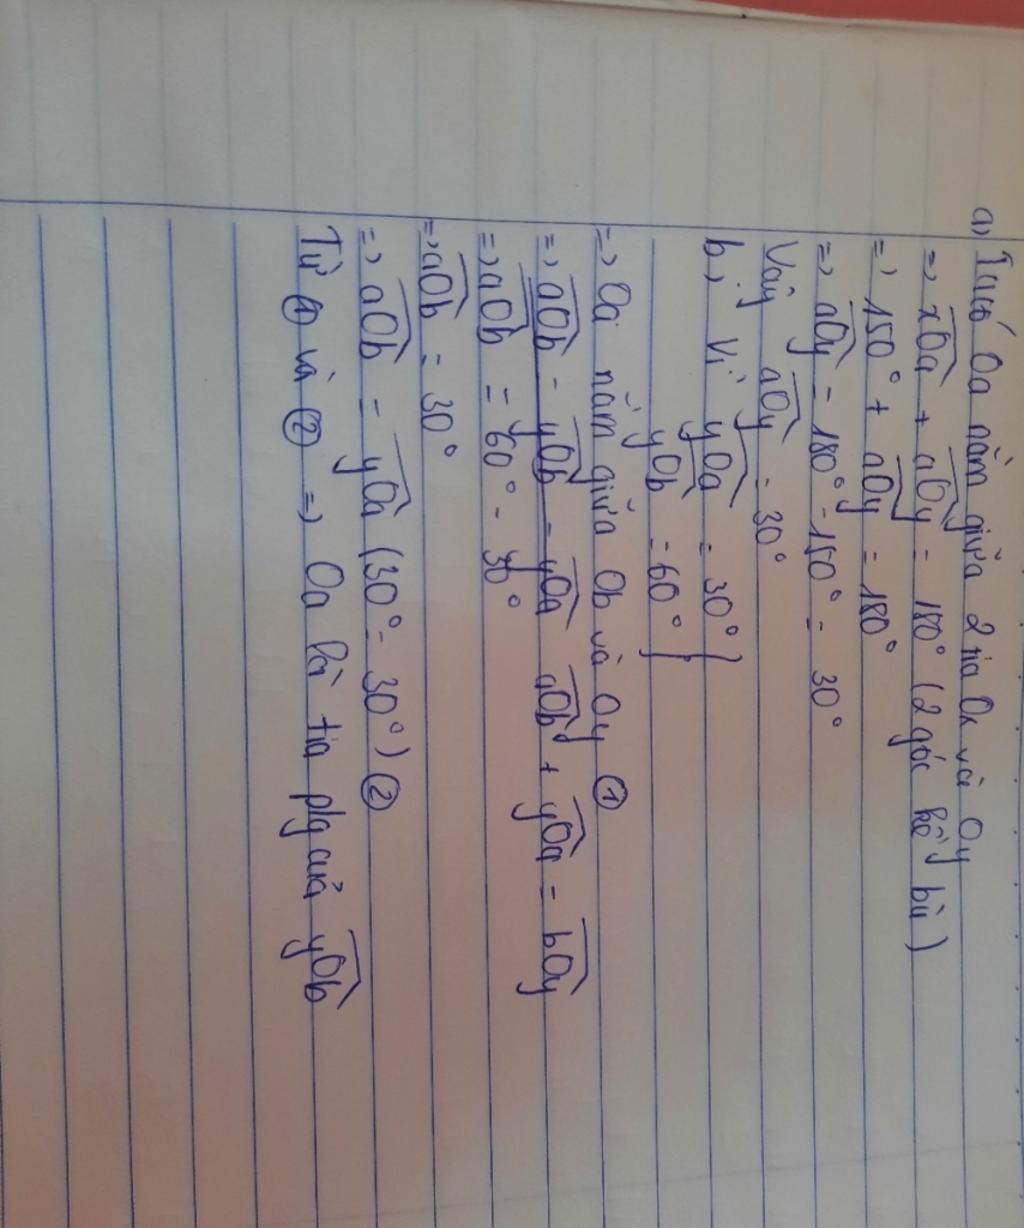 a) Ta có Oa nằm giữa 2 tia Ox và Oy
=> xOa + aOy = 180° (2 góc kề bù)
=> 150° + aOy = 180°
=> aOy = 180° - 150° = 30°
Vậy aOy = 30°
b, Vì yOa = 30° }
yOb = 60° }
=> Oa nằm giữa Ob và Oy ①
=> aOb - yOb = yOa aOb + yOa = bOy
=> aOb = 60° - 30°
=> aOb = 30°
=> aOb = yOa (30° = 30°) ②
Từ ① và ② => Oa là tia p/g của yOb